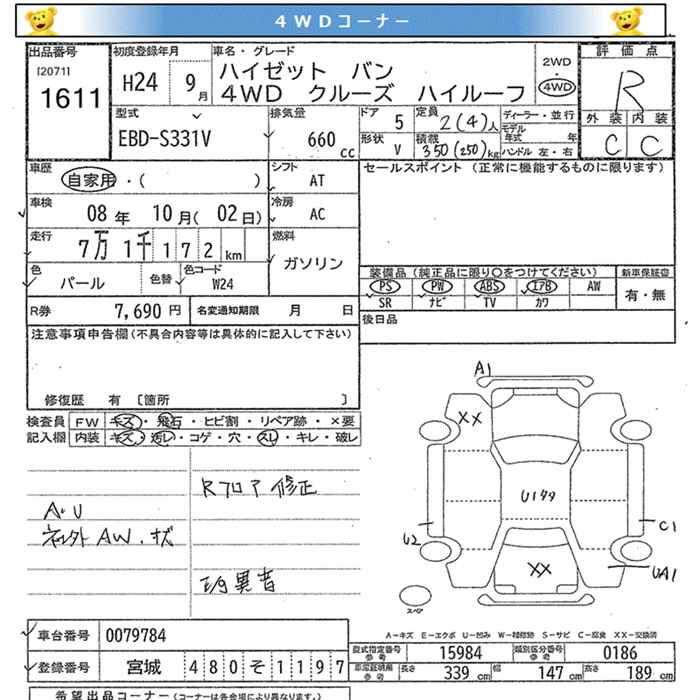 4WDコーナー
出品番号 初度登録年月 車名・グレード 評価点
[2071] H24 9月 ハイゼット バン 2WD R
1611 4WD クルーズ ハイルーフ 4WD
型式 排気量 ドア 定員 ディーラー・並行 外装 内装
EBD-S331V 660cc 5 2(4)人 モデル年式 年 C C
形状 V 積載 350(250)kg ハンドル 左・右
車歴 シフト セールスポイント(正常に機能するものに限ります)
自家用・( ) AT
車検 冷房
08年 10月(02日) AC
走行 燃料
7万1千172km ガソリン
色 色替 色コード 装備品(純正品に限り○をつけてください) 新車保証書
パール W24 PS PW ABS エアB AW 有・無
SR ナビ TV カワ
R券 7,690円 名変通知期限 月 日 後日品
注意事項申告欄(不具合内容等は具体的に記入して下さい)
修復歴 有 [箇所 ]
検査員 FW キズ・飛石・ヒビ割・リペア跡・×要
記入欄 内装 キズ・汚レ・コゲ・穴・スレ・キレ・破レ
A・U
AW・キズ
Rフロア修正
異音
A1
XX
U179
U2
C1
XX
UA1
スペア
A-キズ E-エクボ U-凹み W-補修跡 S-サビ C-腐食 XX-交換済
車台番号 0079784
型式指定番号 参考 15984 類別区分番号 参考 0186
登録番号 宮城 480そ1197
車庫証明用 参考 長さ 339cm 幅 147cm 高さ 189cm
希望出品コーナー(コーナーは各会場により異なります。)